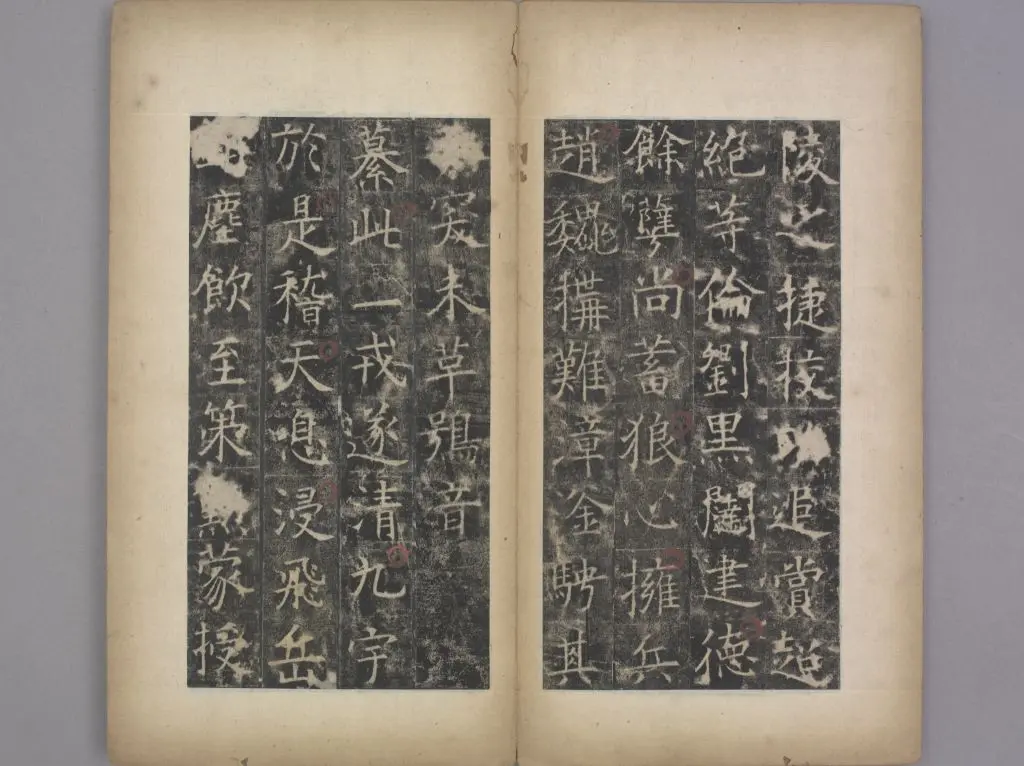 陵之捷挍追賞超
絕等倫劉黑闥建德
餘孽尚蓄狼心擁兵
趙魏搆難章釜騁其
未革鴞音
此一戎遂清九宇
於是稽天息浸飛岳
塵飲至策蒙授